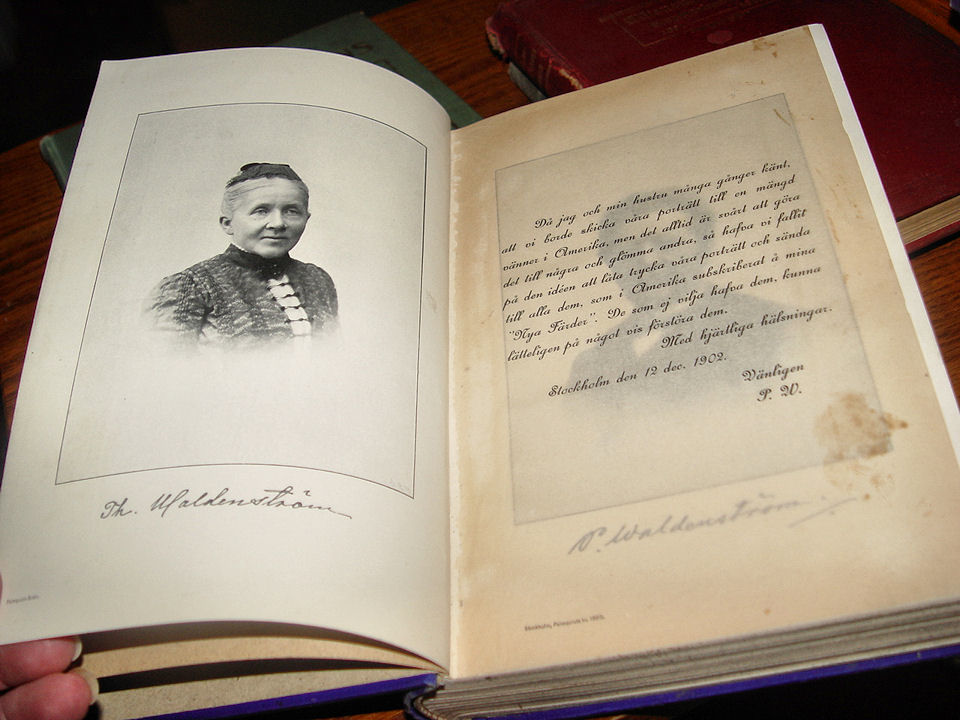 Th. Waldenström
Då jag och min hustru många gånger känt,
att vi borde skicka våra porträtt till en mängd
vänner i Amerika, men det alltid är svårt att göra
det till några och glömma andra, så hafva vi fallit
på den idéen att låta trycka våra porträtt och sända
till alla dem, som i Amerika subskriberat å mina
"Nya Färder". De som ej vilja hafva dem, kunna
lätteligen på något vis förstöra dem.
Med hjärtliga hälsningar.
Stockholm den 12 dec. 1902.
Vänligen
P. W.
P. Waldenström
Stockholm,